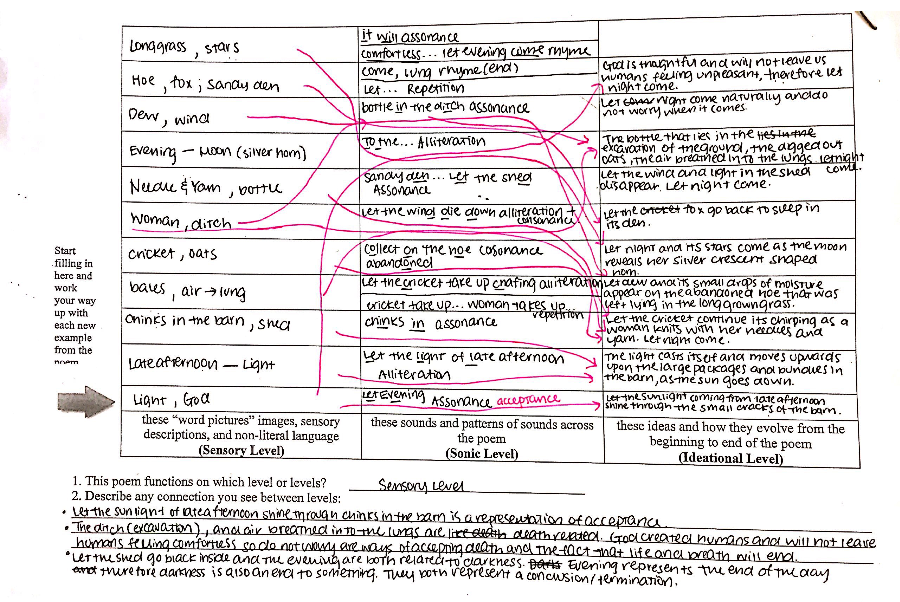 Long grass, stars
Hoe, fox; sandy den
Dew, wind
Evening – Moon (silver horn)
Needle & Yarn, bottle
Woman, ditch
Cricket, oats
bales, air → lung
Chinks in the barn, shed
Late afternoon – Light
Light, God
these “word pictures” images, sensory
descriptions, and non-literal language
(Sensory Level)
it will assonance
comfortless... let evening come rhyme
come, lung rhyme (end)
Let... Repetition
bottle in the ditch assonance
To the... Alliteration
Sandy den... Let the shed
Assonance
Let the wind die down alliteration +
consonance
Collect on the hoe cosonance
abandoned
Let the cricket take up chafing alliteration
cricket take up... woman takes up
repetition
chinks in assonance
Let the light of late afternoon
Alliteration
Let Evening Assonance acceptance
these sounds and patterns of sounds across
the poem
(Sonic Level)
God is thoughtful and will not leave us
humans feeling unpleasant, therefore let
night come.
Let night come naturally and do
not worry when it comes.
The bottle that lies in the
excavation of the ground, the digged out
oats, the air breathed in to the lungs. let night
come.
Let the wind and light in the shed
disappear. Let night come.
Let the cricket fox go back to sleep in
its den.
Let night and its stars come as the moon
reveals her silver crescent shaped
horn.
Let dew and its small drops of moisture
appear on the abandoned hoe that was
left lying in the long grown grass.
Let the cricket continue its chirping as a
woman knits with her needles and
yarn. Let night come.
The light casts itself and moves upwards
upon the large packages and bundles in
the barn, as the sun goes down.
Let the sunlight coming from late afternoon
shine through the small cracks of the barn.
these ideas and how they evolve from the
beginning to end of the poem
(Ideational Level)
Start
filling in
here and
work
your way
up with
each new
example
from the
poem
1. This poem functions on which level or levels? Sensory Level
2. Describe any connection you see between levels:
• Let the sunlight of late afternoon shine through chinks in the barn is a representation of acceptance
• The ditch (excavation), and air breathed in to the lungs are like death death related. God created humans and will not leave
humans felling comfortless so do not worry are ways of accepting death and the fact that life and breath will end.
• Let the shed go black inside and the evening are both related to darkness. Evening represents the end of the day
and therefore darkness is also an end to something. They both represent a conclusion/termination.